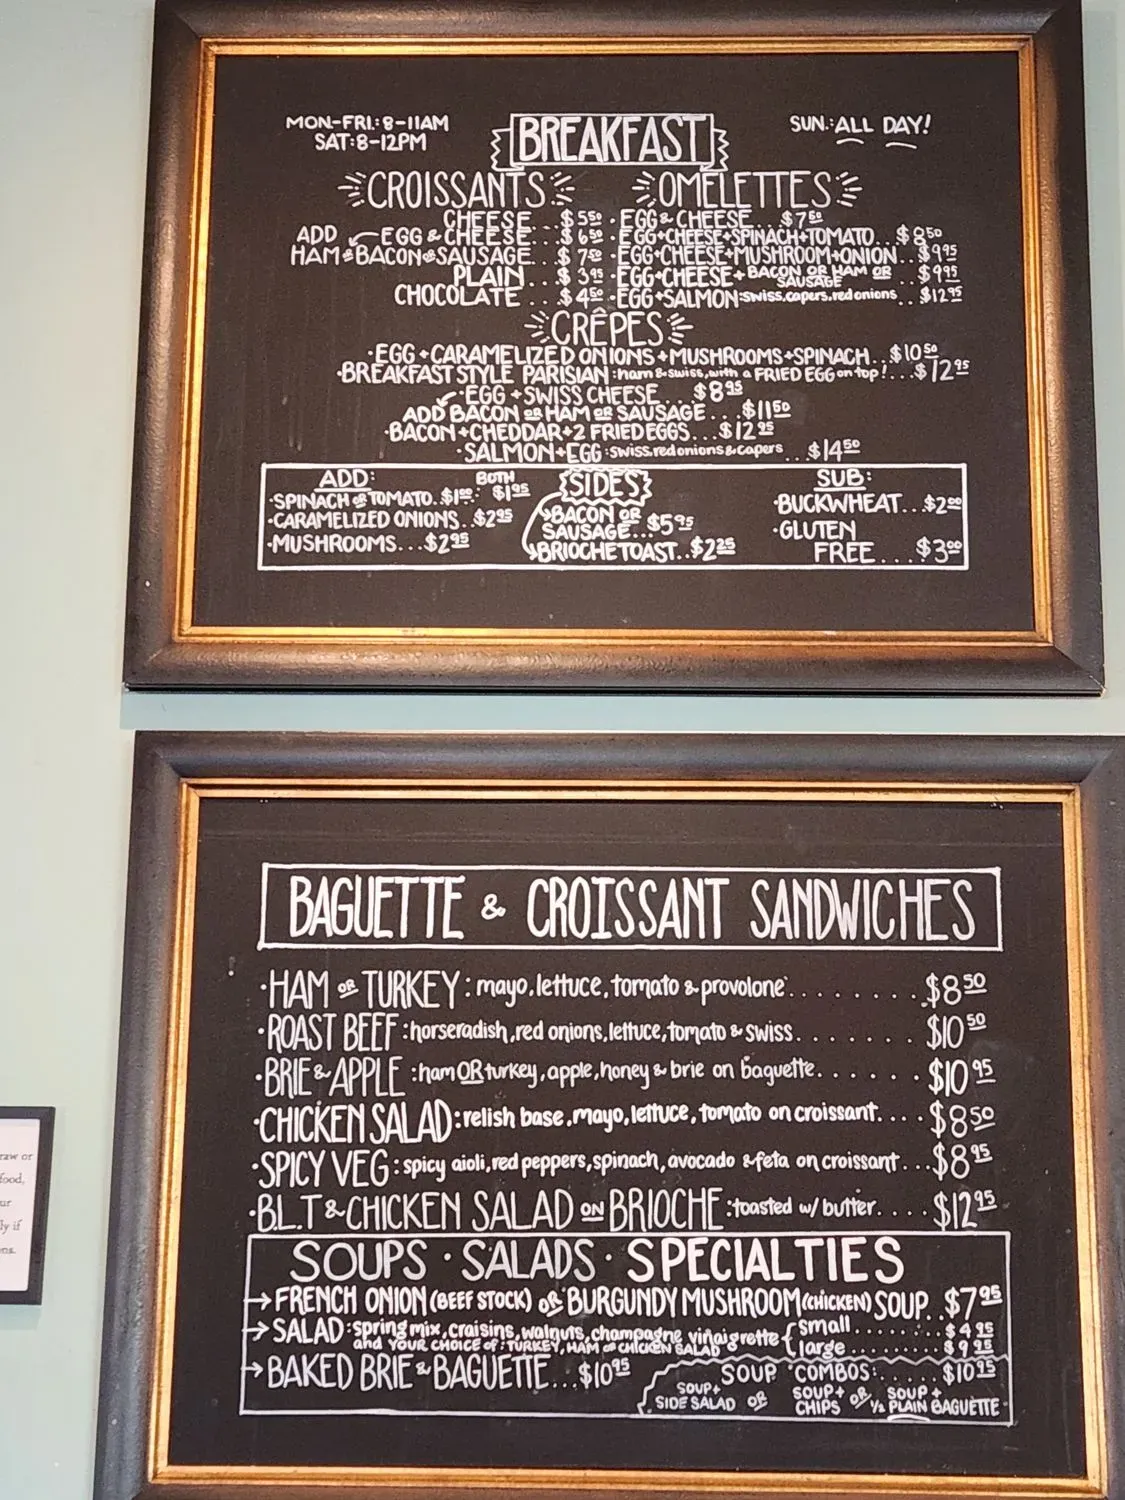 MON-FRI.: 8-11AM
SAT: 8-12PM
BREAKFAST
SUN.: ALL DAY!
CROISSANTS
CHEESE... $5.50
ADD EGG & CHEESE... $6.50
HAM OR BACON OR SAUSAGE... $7.50
PLAIN... $3.95
CHOCOLATE... $4.50
OMELETTES
·EGG & CHEESE... $7.50
·EGG+CHEESE+SPINACH+TOMATO... $8.50
·EGG+CHEESE+MUSHROOM+ONION.. $9.95
·EGG+CHEESE+BACON OR HAM OR SAUSAGE $9.95
·EGG+SALMON: swiss, capers, red onions.. $12.95
CRÊPES
·EGG+CARAMELIZED ONIONS+MUSHROOMS+SPINACH.. $10.50
·BREAKFAST STYLE PARISIAN: ham & swiss, with a FRIED EGG on top!... $12.95
·EGG+SWISS CHEESE... $8.95
ADD BACON OR HAM OR SAUSAGE... $11.50
·BACON+CHEDDAR+2 FRIED EGGS... $12.95
·SALMON+EGG: swiss, red onions & capers... $14.50
ADD: BOTH
·SPINACH OR TOMATO.. $1.00 : $1.95
·CARAMELIZED ONIONS.. $2.95
·MUSHROOMS... $2.95
SIDES
BACON OR
SAUSAGE... $5.95
BRIOCHE TOAST.. $2.25
SUB:
·BUCKWHEAT.. $2.00
·GLUTEN
FREE.... $3.00
BAGUETTE & CROISSANT SANDWICHES
·HAM OR TURKEY: mayo, lettuce, tomato & provolone........ $8.50
·ROAST BEEF: horseradish, red onions, lettuce, tomato & swiss....... $10.50
·BRIE & APPLE: ham OR turkey, apple, honey & brie on baguette...... $10.95
·CHICKEN SALAD: relish base, mayo, lettuce, tomato on croissant.... $8.50
·SPICY VEG: spicy aioli, red peppers, spinach, avocado & feta on croissant... $8.95
·B.L.T & CHICKEN SALAD ON BRIOCHE: toasted w/ butter.... $12.95
SOUPS · SALADS · SPECIALTIES
→FRENCH ONION (BEEF STOCK) OR BURGUNDY MUSHROOM (CHICKEN) SOUP.. $7.95
→SALAD: spring mix, craisins, walnuts, champagne vinaigrette { small........ $4.95
and YOUR CHOICE of: TURKEY, HAM OR CHICKEN SALAD large......... $9.95
→BAKED BRIE & BAGUETTE... $10.95
SOUP COMBOS:...... $10.95
SOUP+ SIDE SALAD OR SOUP+ CHIPS OR SOUP+ ½ PLAIN BAGUETTE
raw or
food,
ur
ly if
ns.